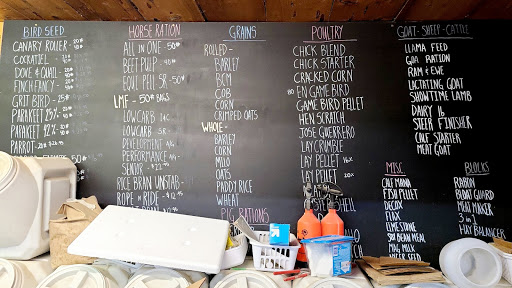 BIRD SEED
CANARY ROLLER
COCKATIEL
DOVE & QUAIL
FINCH FANCY
GRIT BIRD - 25#
PARAKEET 25%
PARAKEET 12%
PARROT
HORSE RATION
ALL IN ONE - 50#
BEET PULP - 40#
EQUI PELL SR. - 50#
LMF - 50# BAGS
LOWCARB
LOWCARB
DEVELOPMENT
PERFORMANCE
SENIOR
RICE BRAN UNSTAB
ROPE N RIDE
GRAINS
ROLLED -
BARLEY
BCM
COB
CORN
CRIMPED OATS
WHOLE -
BARLEY
CORN
MILO
OATS
PADDY RICE
WHEAT
PIG RATIONS
POULTRY
CHICK BLEND
CHICK STARTER
CRACKED CORN
EN GAME BIRD
GAME BIRD PELLET
HEN SCRATCH
JOSE GUERRERO
LAY CRUMBLE
LAY PELLET 16%
LAY PELLET
SHELL
GOAT - SHEEP - CATTLE
LLAMA FEED
GOA RATION
RAM & EWE
LACTATING GOAT
SHOWTIME LAMB
DAIRY 16
STEER FINISHER
CALF STARTER
MEAT GOAT
MISC
CALF MANNA
FISH PELLET
DECOX
FLAX
LIMESTONE
SOY BEAN MEAL
MAG MILK
BLOCKS
RABON
BLOAT GUARD
MEAT MAKER
3 in 1
HAY BALANCER